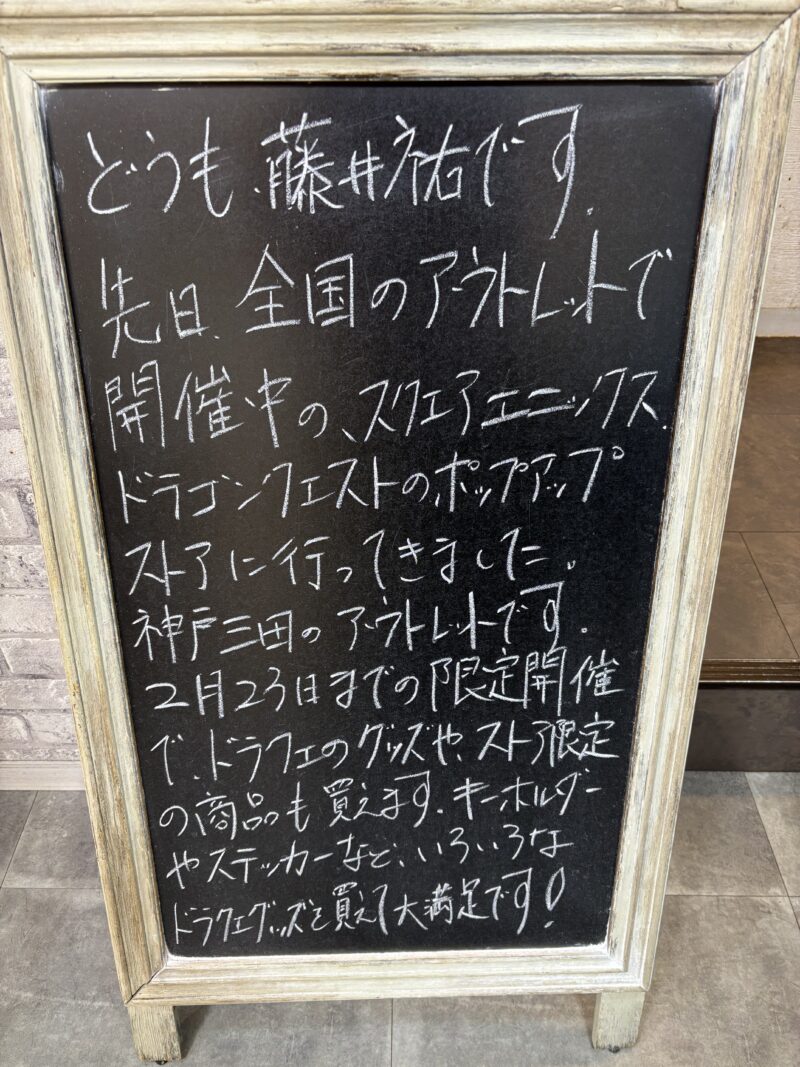 どうも、藤井祐です。
先日、全国のアウトレットで
開催中の、スクエアエニックス、
ドラゴンクエストのポップアップ
ストアに行ってきました。
神戸三田のアウトレットです。
2月23日までの限定開催
で、ドラクエのグッズや、ストア限定
の商品も買えます。キーホルダー
やステッカーなど、いろいろな
ドラクエグッズを買えて大満足です!